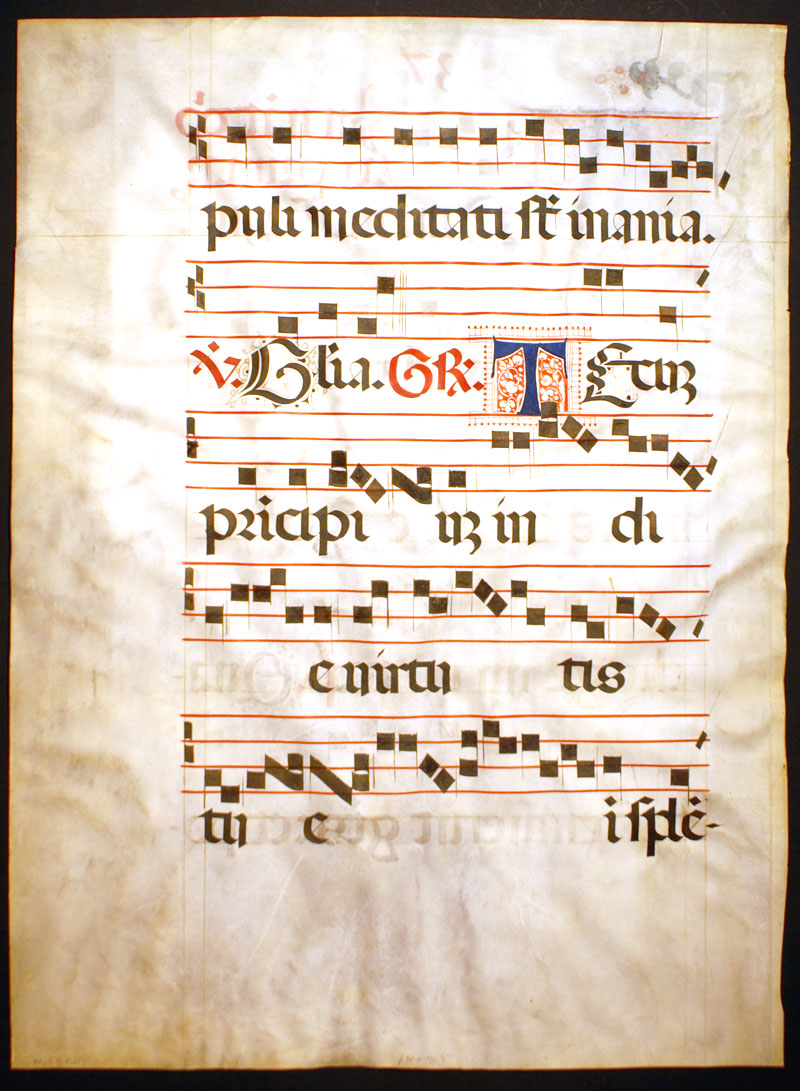 puli meditati st̄ inania.
℣. Gl̄ia. GR̄. T Ecuȝ
pricipi uȝ in di
e uirtu tis
tu e i splē-